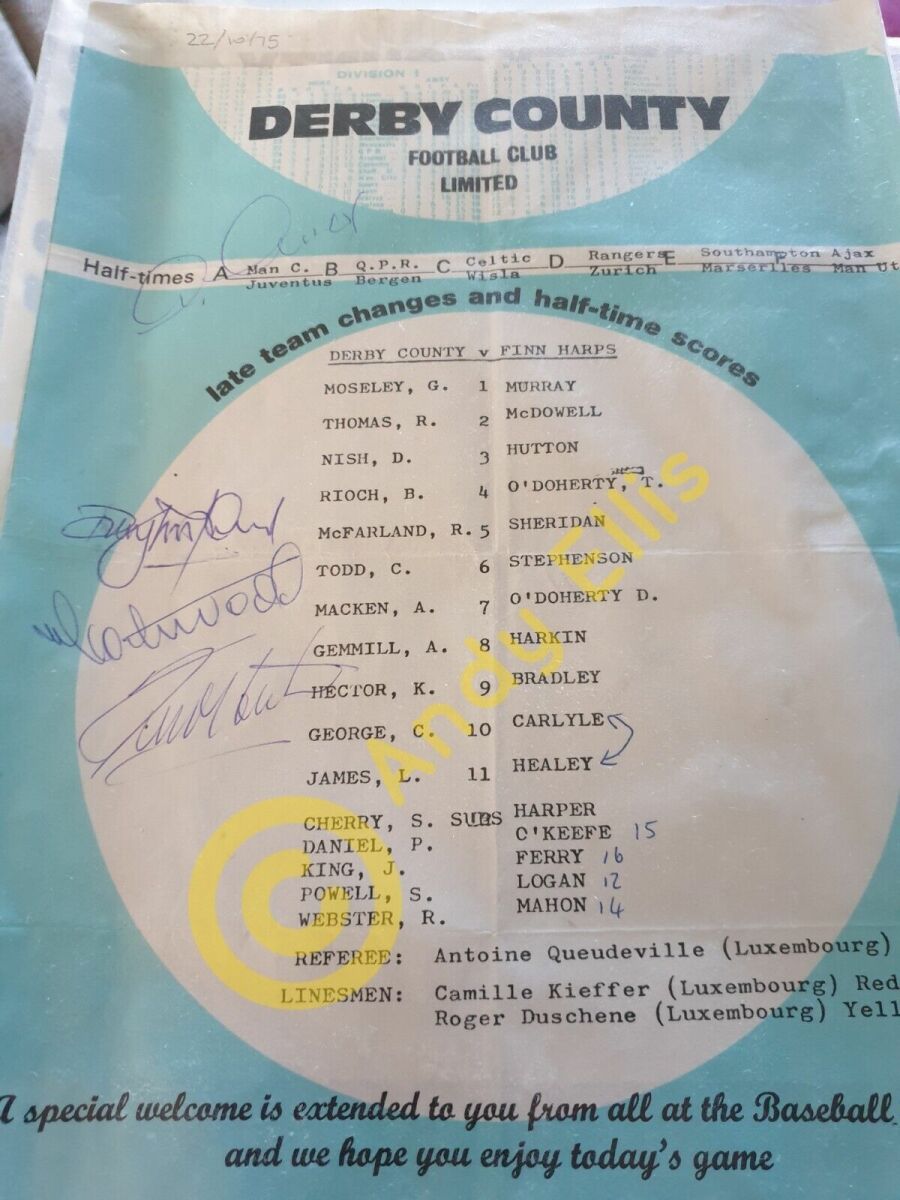 22/10/75
DIVISION 1
DERBY COUNTY
FOOTBALL CLUB
LIMITED
Half-times A Man C. B Q.P.R. C Celtic D Rangers E Southampton F Ajax
Juventus Bergen Wisla Zurich Marserlles Man Ut
late team changes and half-time scores
DERBY COUNTY v FINN HARPS
MOSELEY, G. 1 MURRAY
THOMAS, R. 2 McDOWELL
NISH, D. 3 HUTTON
RIOCH, B. 4 O'DOHERTY, T.
McFARLAND, R. 5 SHERIDAN
TODD, C. 6 STEPHENSON
MACKEN, A. 7 O'DOHERTY D.
GEMMILL, A. 8 HARKIN
HECTOR, K. 9 BRADLEY
GEORGE, C. 10 CARLYLE
JAMES, L. 11 HEALEY
CHERRY, S. SUBS HARPER
DANIEL, P. O'KEEFE 15
KING, J. FERRY 16
POWELL, S. LOGAN 12
WEBSTER, R. MAHON 14
REFEREE: Antoine Queudeville (Luxembourg)
LINESMEN: Camille Kieffer (Luxembourg) Red
Roger Duschene (Luxembourg) Yell
A special welcome is extended to you from all at the Baseball
and we hope you enjoy today's game
© Andy Ellis